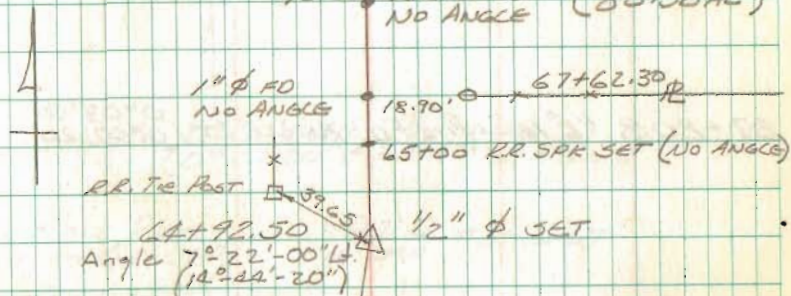 NO ANGLE
1" ∅ FD
NO ANGLE
18.90'
67+62.30 ℄
65+00 R.R. SPK SET (NO ANGLE)
R.R. Tie Post
39.65
64+92.50
1/2" ∅ SET
Angle 7°-22'-00" Lt.
(14°-44'-20")